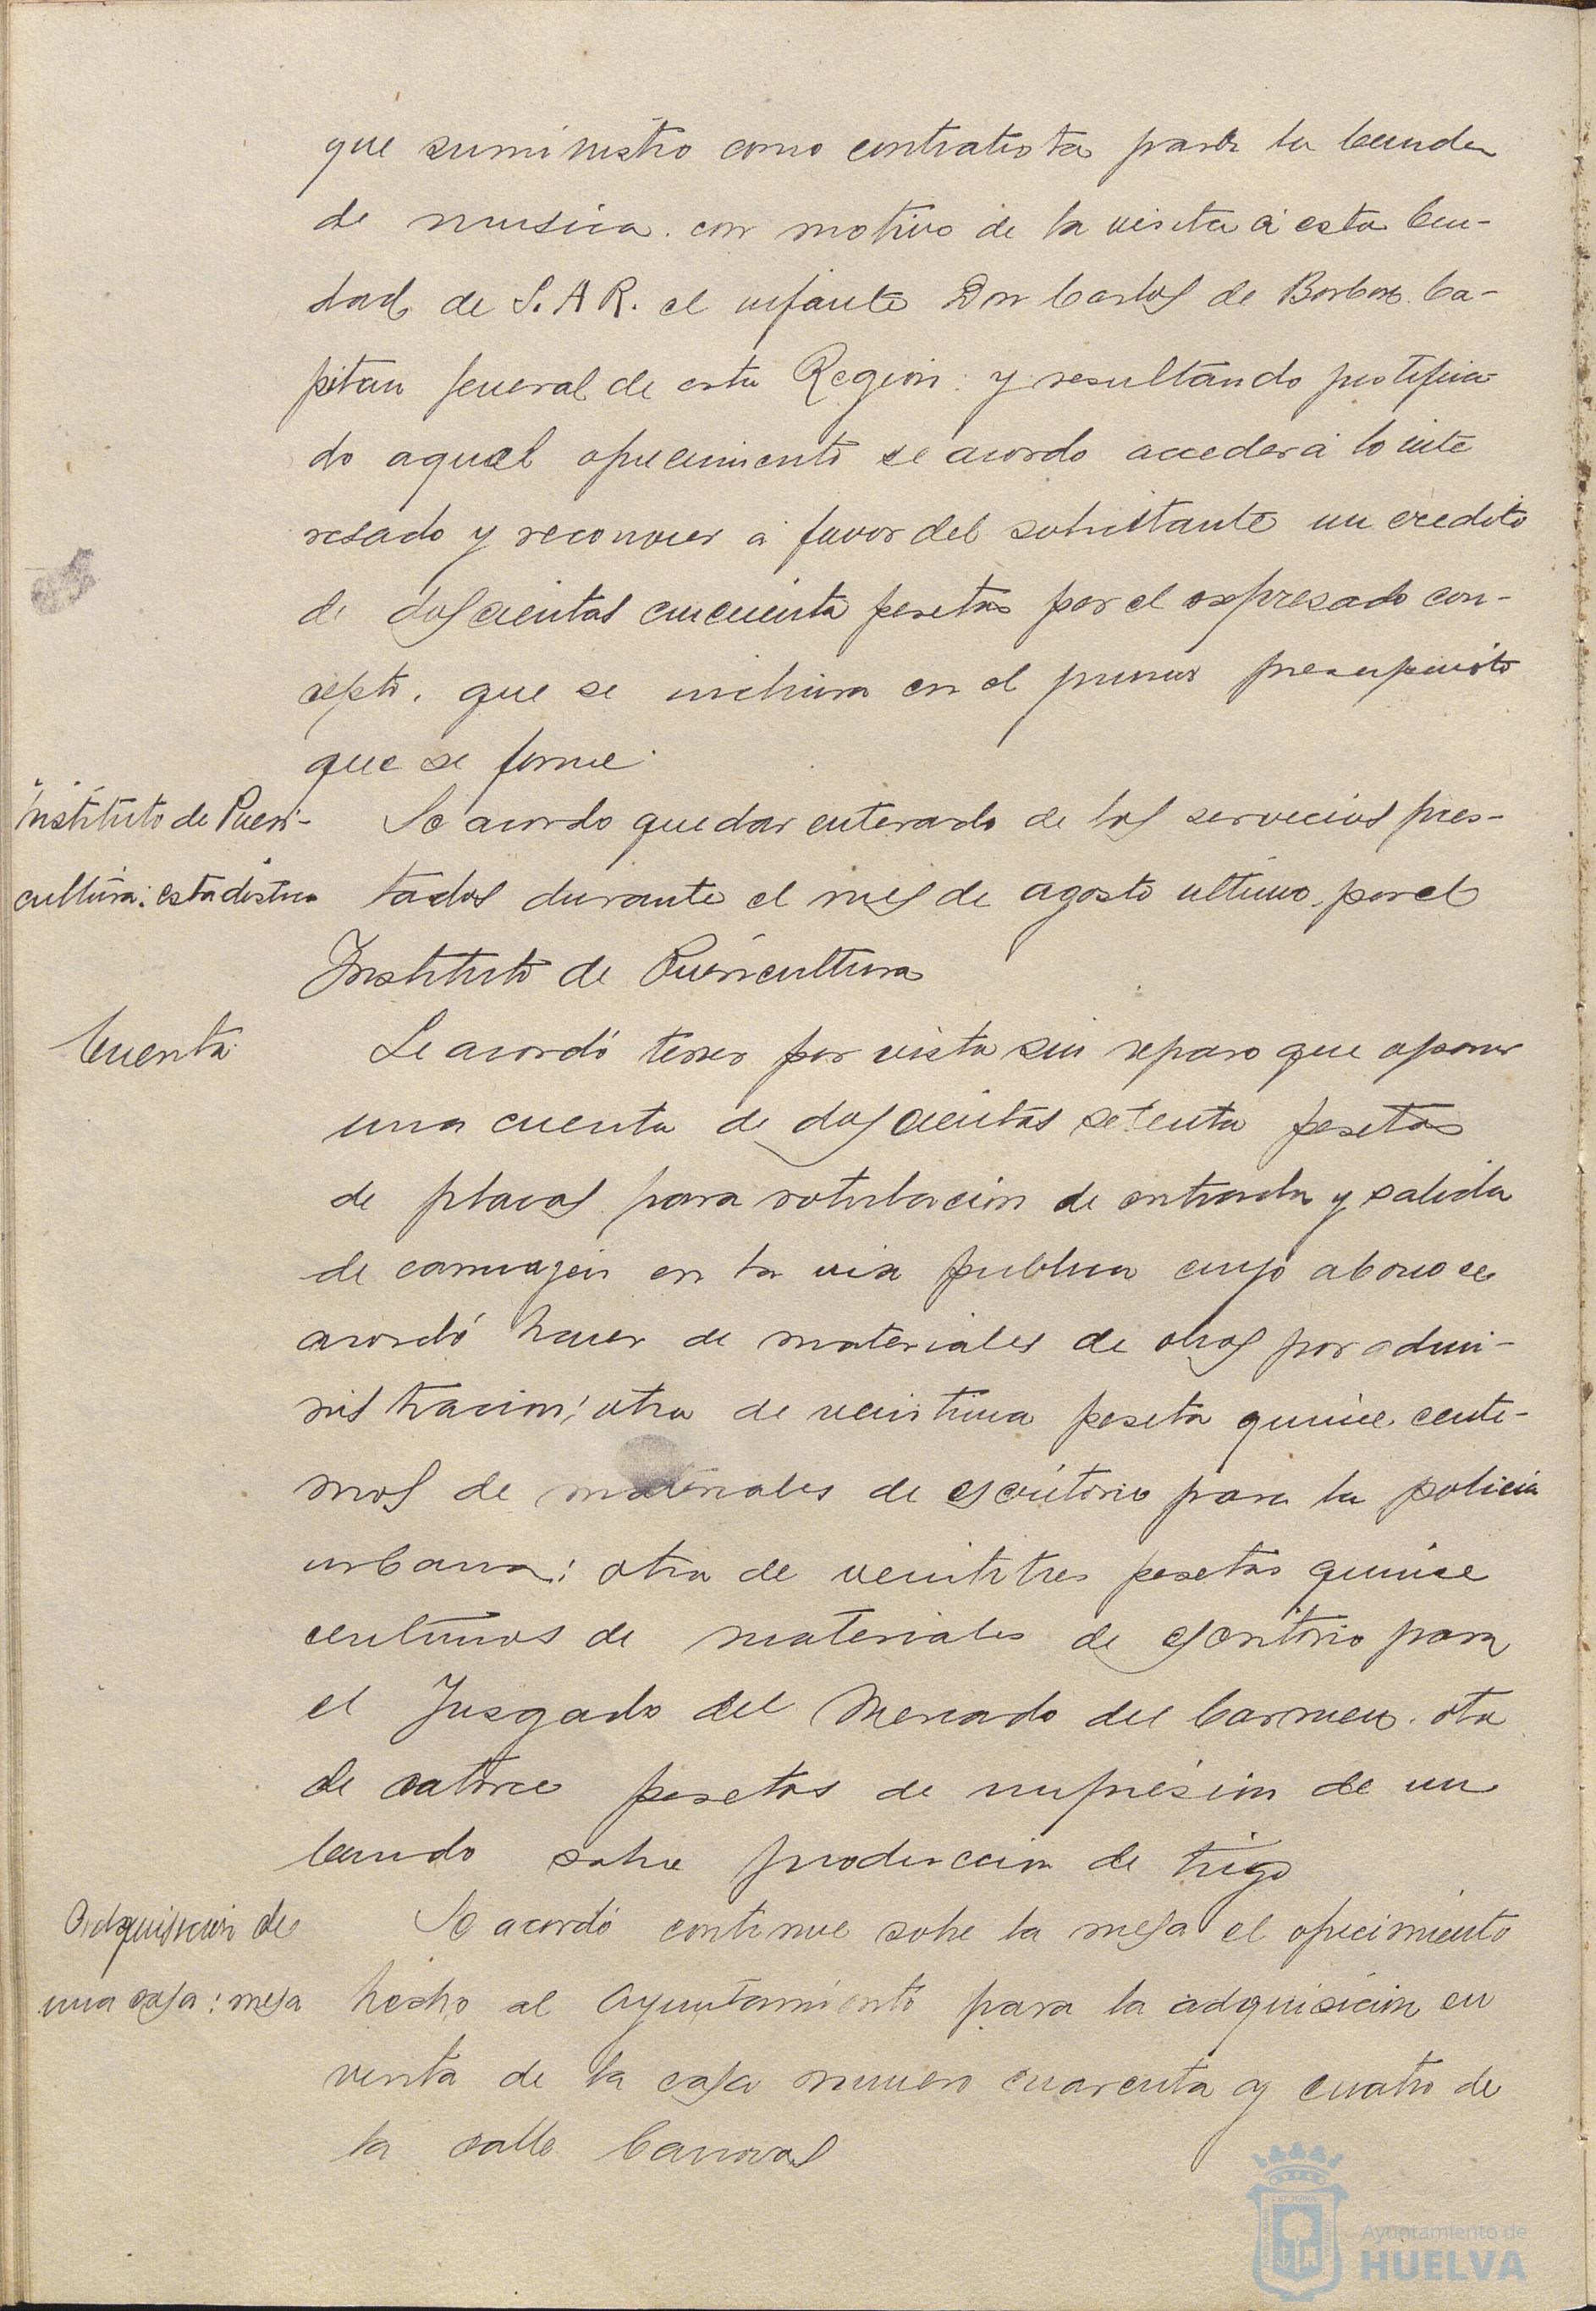 que suministro como contratista para la banda
de musica. con motivo de la visita á esta Ciu-
dad de S. A R. el infante Don Carlos de Borbon. Ca-
pitan General de esta Region: y resultando justifica-
do aquel ofrecimiento se acordo acceder á lo inte
resado y reconocer á favor del solicitante un credito
de doscientas cincuenta pesetas por el expresado con-
cepto. que se incluira en el primer presupuesto
que se forme.
Instituto de Pueri-
cultura: estadistica
Se acordo quedar enterado de los servicios pres-
tados durante el mes de agosto ultimo. por el
Instituto de Puericultura
Cuenta
Se acordó tener por vista sin reparo que oponer
una cuenta de doscientas setenta pesetas
de placas para rotulacion de entrada y salida
de carruajes en la via publica cuyo abono se
acordó hacer de materiales de obras por admi-
nistracion; otra de veintiuna peseta quince centi-
mos de materiales de escritorio para la policia
urbana: otra de veintitres pesetas quince
centimos de materiales de escritorio para
el Jusgado del Mercado del Carmen. otra
de catorce pesetas de impresion de un
bando sobre produccion de trigo
Adquisicion de
una casa: mesa
Se acordó continue sobre la mesa el ofrecimiento
hecho al Ayuntamiento para la adquisicion en
venta de la casa numero cuarenta y cuatro de
la calle Canovas
Ayuntamiento de
HUELVA